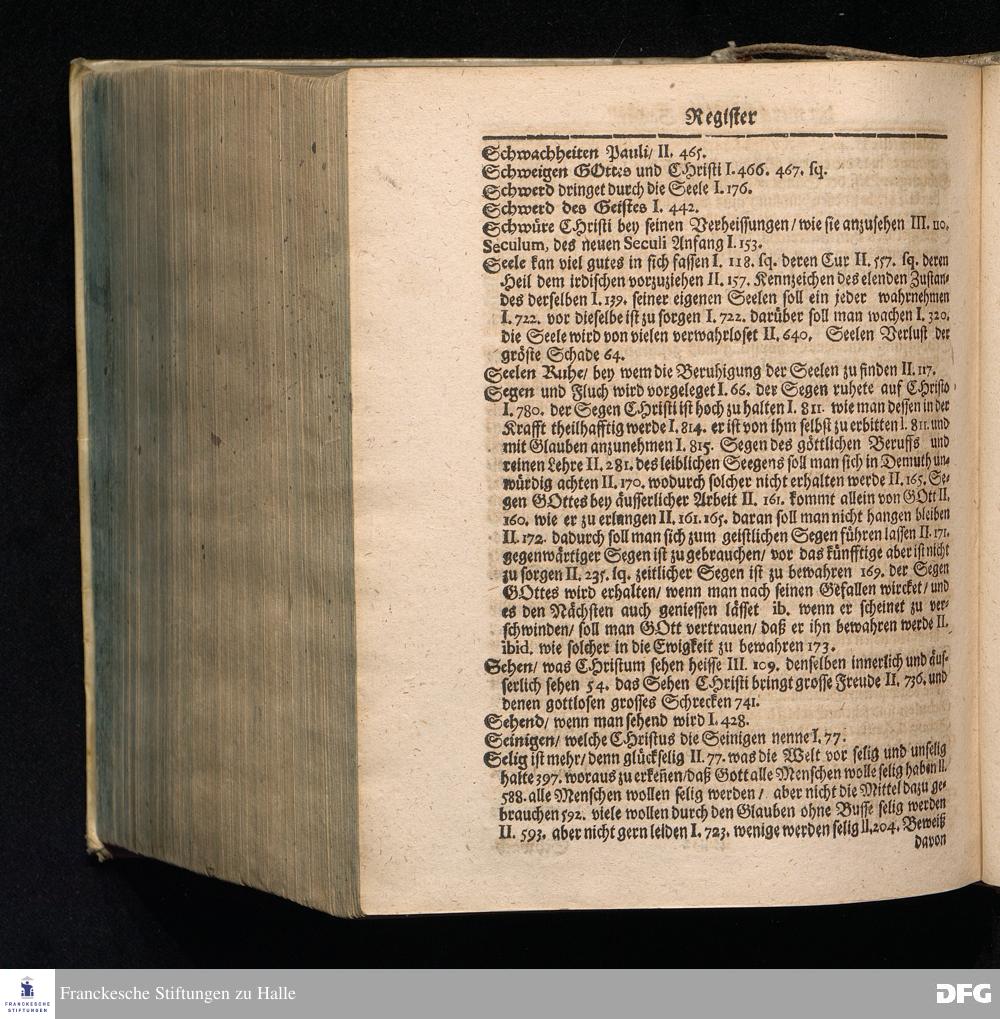 Register
Schwachheiten Pauli/ II. 465.
Schweigen GOttes und CHristi I. 466. 467. sq.
Schwerd dringet durch die Seele I. 176.
Schwerd des Geistes I. 442.
Schwüre CHristi bey seinen Verheissungen/ wie sie anzusehen III. 110.
Seculum, des neuen Seculi Anfang I. 153.
Seele kan viel gutes in sich fassen I. 118. sq. deren Cur II. 557. sq. deren
Heil dem irdischen vorzuziehen II. 157. Kennzeichen des elenden Zustan-
des derselben I. 139. seiner eigenen Seelen soll ein jeder wahrnehmen
I. 722. vor dieselbe ist zu sorgen I. 722. darüber soll man wachen I. 320.
die Seele wird von vielen verwahrloset II. 640. Seelen Verlust der
gröste Schade 64.
Seelen Ruhe/ bey wem die Beruhigung der Seelen zu finden II. 117.
Segen und Fluch wird vorgeleget I. 66. der Segen ruhete auf CHristo
I. 780. der Segen CHristi ist hoch zu halten I. 811. wie man dessen in der
Krafft theilhafftig werde I. 814. er ist von ihm selbst zu erbitten I. 811. und
mit Glauben anzunehmen I. 815. Segen des göttlichen Beruffs und
reinen Lehre II. 281. des leiblichen Seegens soll man sich in Demuth un-
würdig achten II. 170. wodurch solcher nicht erhalten werde II. 165. Se-
gen GOttes bey äusserlicher Arbeit II. 161. kommt allein von GOtt II.
160. wie er zu erlangen II. 161. 165. daran soll man nicht hangen bleiben
II. 172. dadurch soll man sich zum geistlichen Segen führen lassen II. 171.
gegenwärtiger Segen ist zu gebrauchen/ vor das künfftige aber ist nicht
zu sorgen II. 235. sq. zeitlicher Segen ist zu bewahren 169. der Segen
GOttes wird erhalten/ wenn man nach seinen Gefallen wircket/ und
es den Nächsten auch geniessen lässet ib. wenn er scheinet zu ver-
schwinden/ soll man GOtt vertrauen/ daß er ihn bewahren werde II.
ibid. wie solcher in die Ewigkeit zu bewahren 173.
Sehen/ was CHristum sehen heisse III. 109. denselben innerlich und äus-
serlich sehen 54. das Sehen CHristi bringt grosse Freude II. 736. und
denen gottlosen grosses Schrecken 741.
Sehend/ wenn man sehend wird I. 428.
Seinigen/ welche CHristus die Seinigen nenne I. 77.
Selig ist mehr/ denn glückselig II. 77. was die Welt vor selig und unselig
halte 397. woraus zu erkeñen/ daß Gott alle Menschen wolle selig haben II.
588. alle Menschen wollen selig werden/ aber nicht die Mittel dazu ge-
brauchen 592. viele wollen durch den Glauben ohne Busse selig werden
II. 593. aber nicht gern leiden I. 723. wenige werden selig II. 204. Beweiß
davon
FRANCKESCHE
STIFTUNGEN
Franckesche Stiftungen zu Halle
DFG